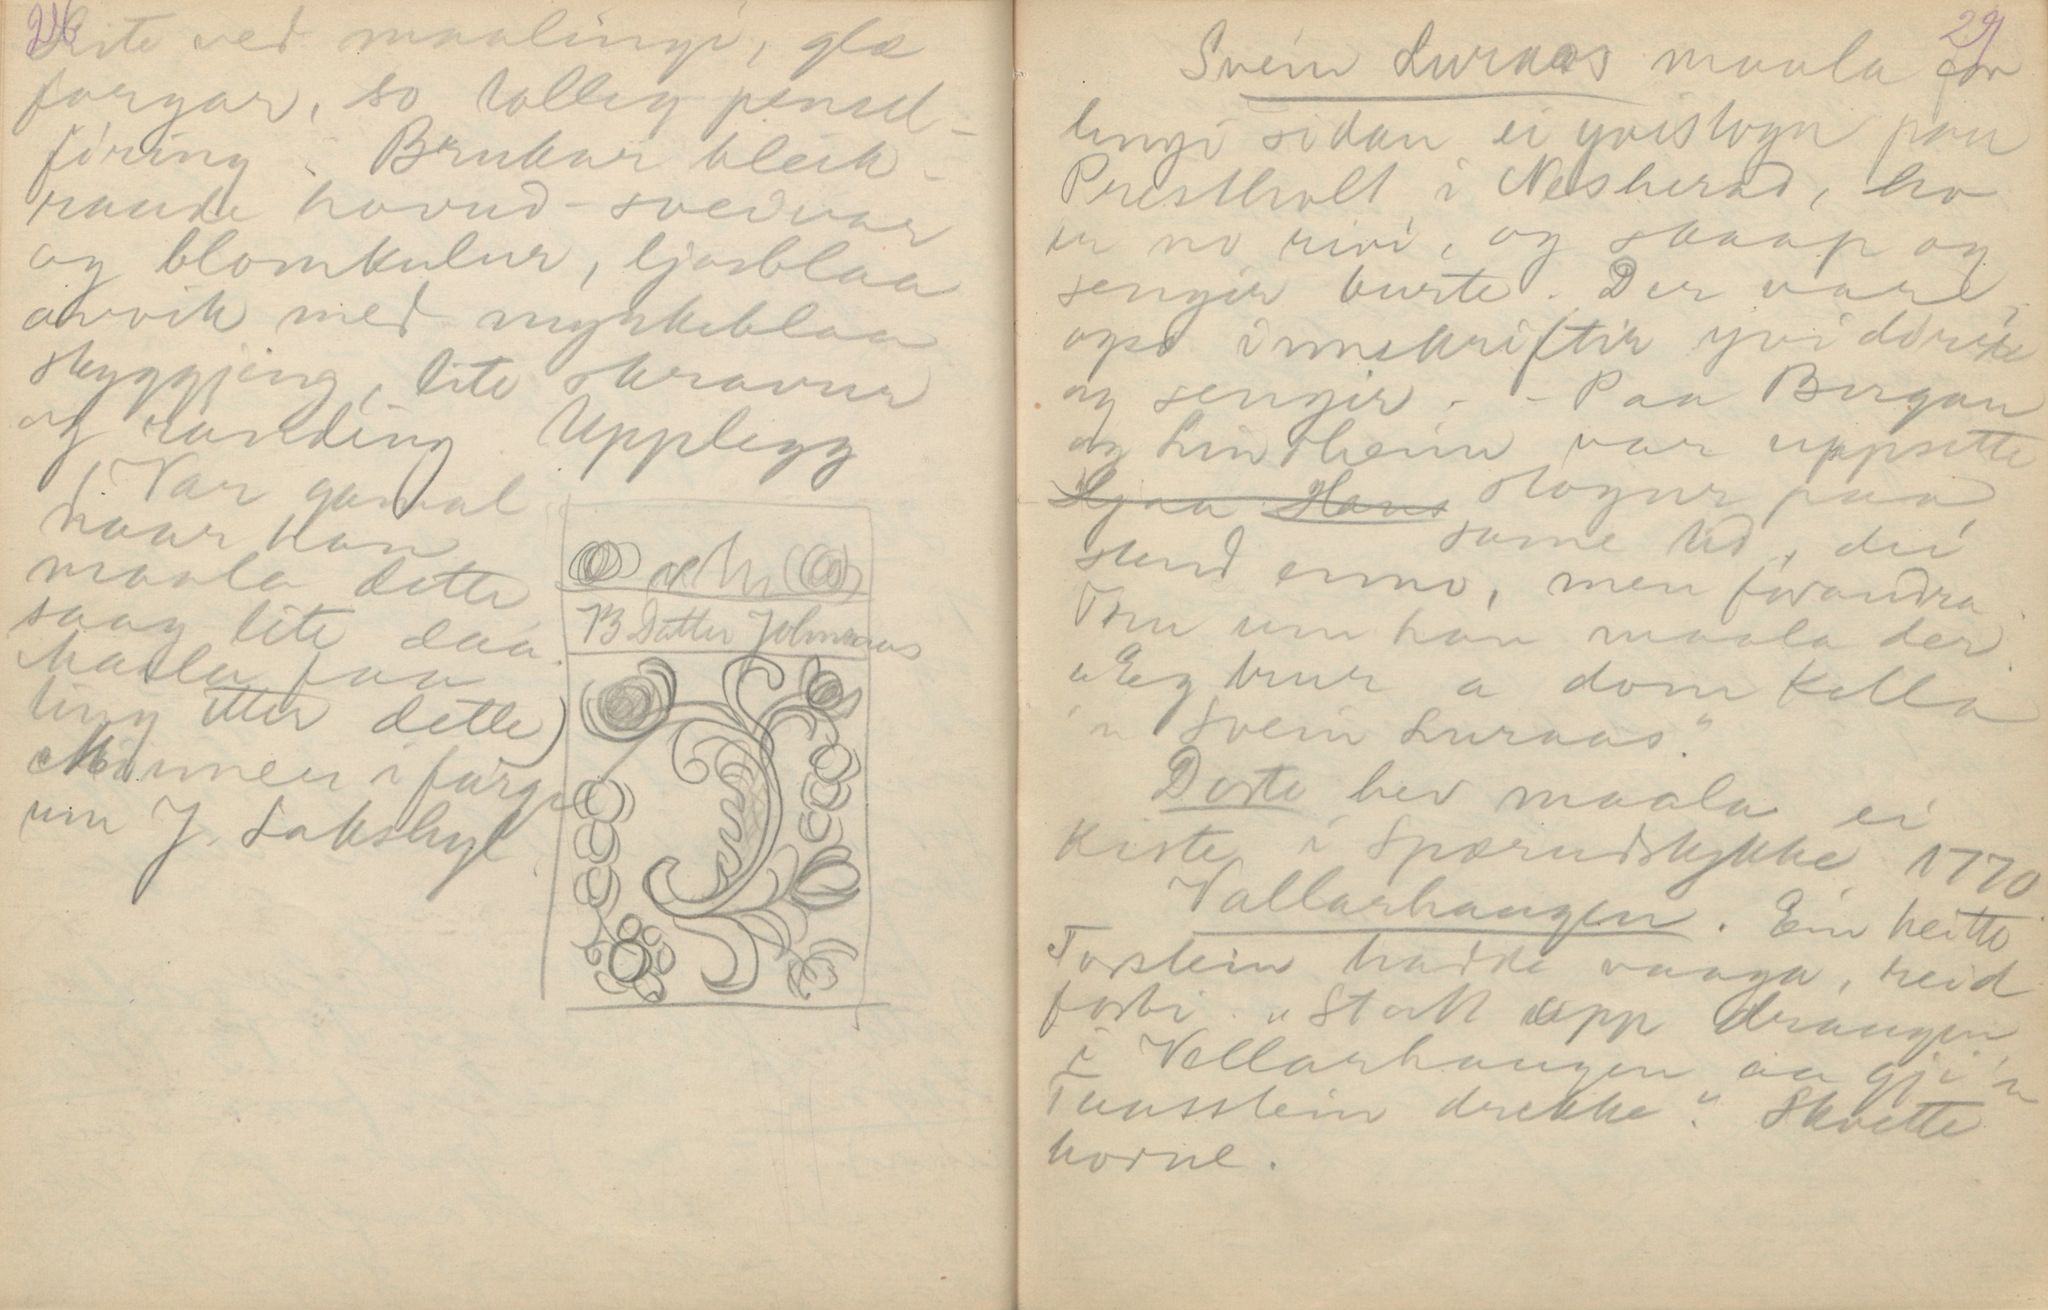 Lite ved maalingi, gla
fargar, so tolleg pensel-
föring. Brukar bleik-
raude hovud-sveivar
og blomkulur, ljosblaa
awik med myrkeblaa
skyggjing, lite skravur
og randing Upplegg
(Var gamal
naar han
maala dette
saag lite daa.
Maala faa
ting etter dette)
Minnen i farge
um J. Lakshyl
B Datter Johnsaas
29
Svein Luraas maala for
lengi sidan ei yvistogu paa
Prestholt i Nesherad, ho
er no rivi, og skaap og
sengir burte. Der vare
ogso innskriftir yvi dörir
og sengir. - Paa Bergan
og Lindheim var uppsette
Ljaa Hans stogur paa
same tid, dei
stend enno, men forandra.
Tru um han maala der.
"Eg trur a dom kalla
'n Svein Luraas."
Dorte hev maala ei
kiste i Sporudstykke 1770
Vallarhaugen. Ein heitte
Torstein hadde vaaga, reid
forbi. "Statt upp draugen
i Vallarhaugen aa gji 'n
Tausstein drekke." Skvette
horne.